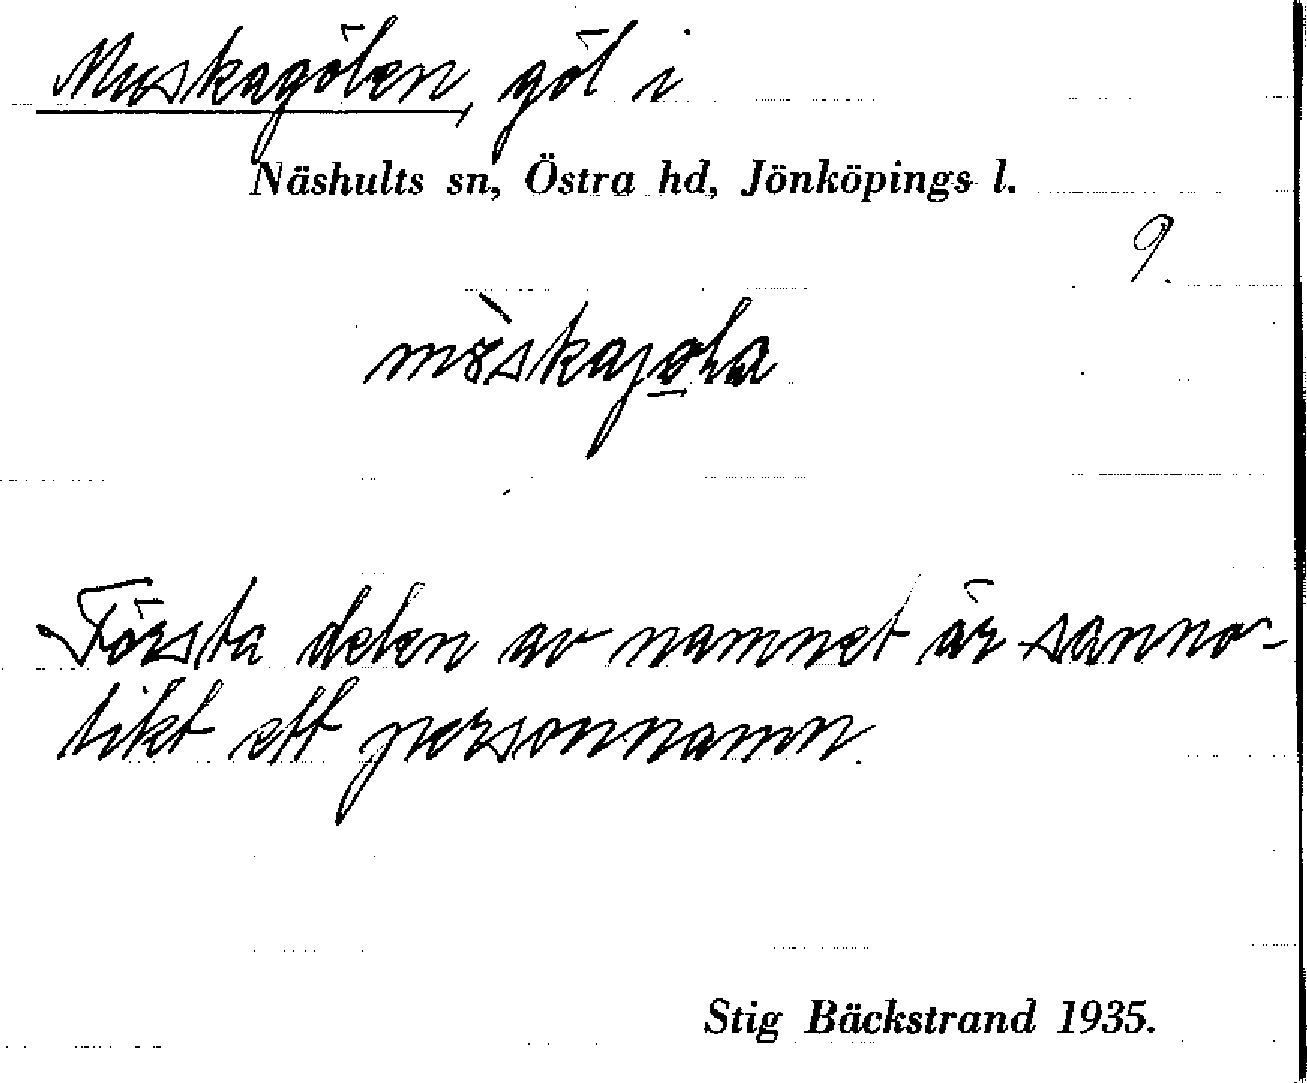 Muskagölen, göl i
Näshults sn, Östra hd, Jönköpings l.
9.
Första delen av namnet är sanno-
likt ett personnamn.
Stig Bäckstrand 1935.